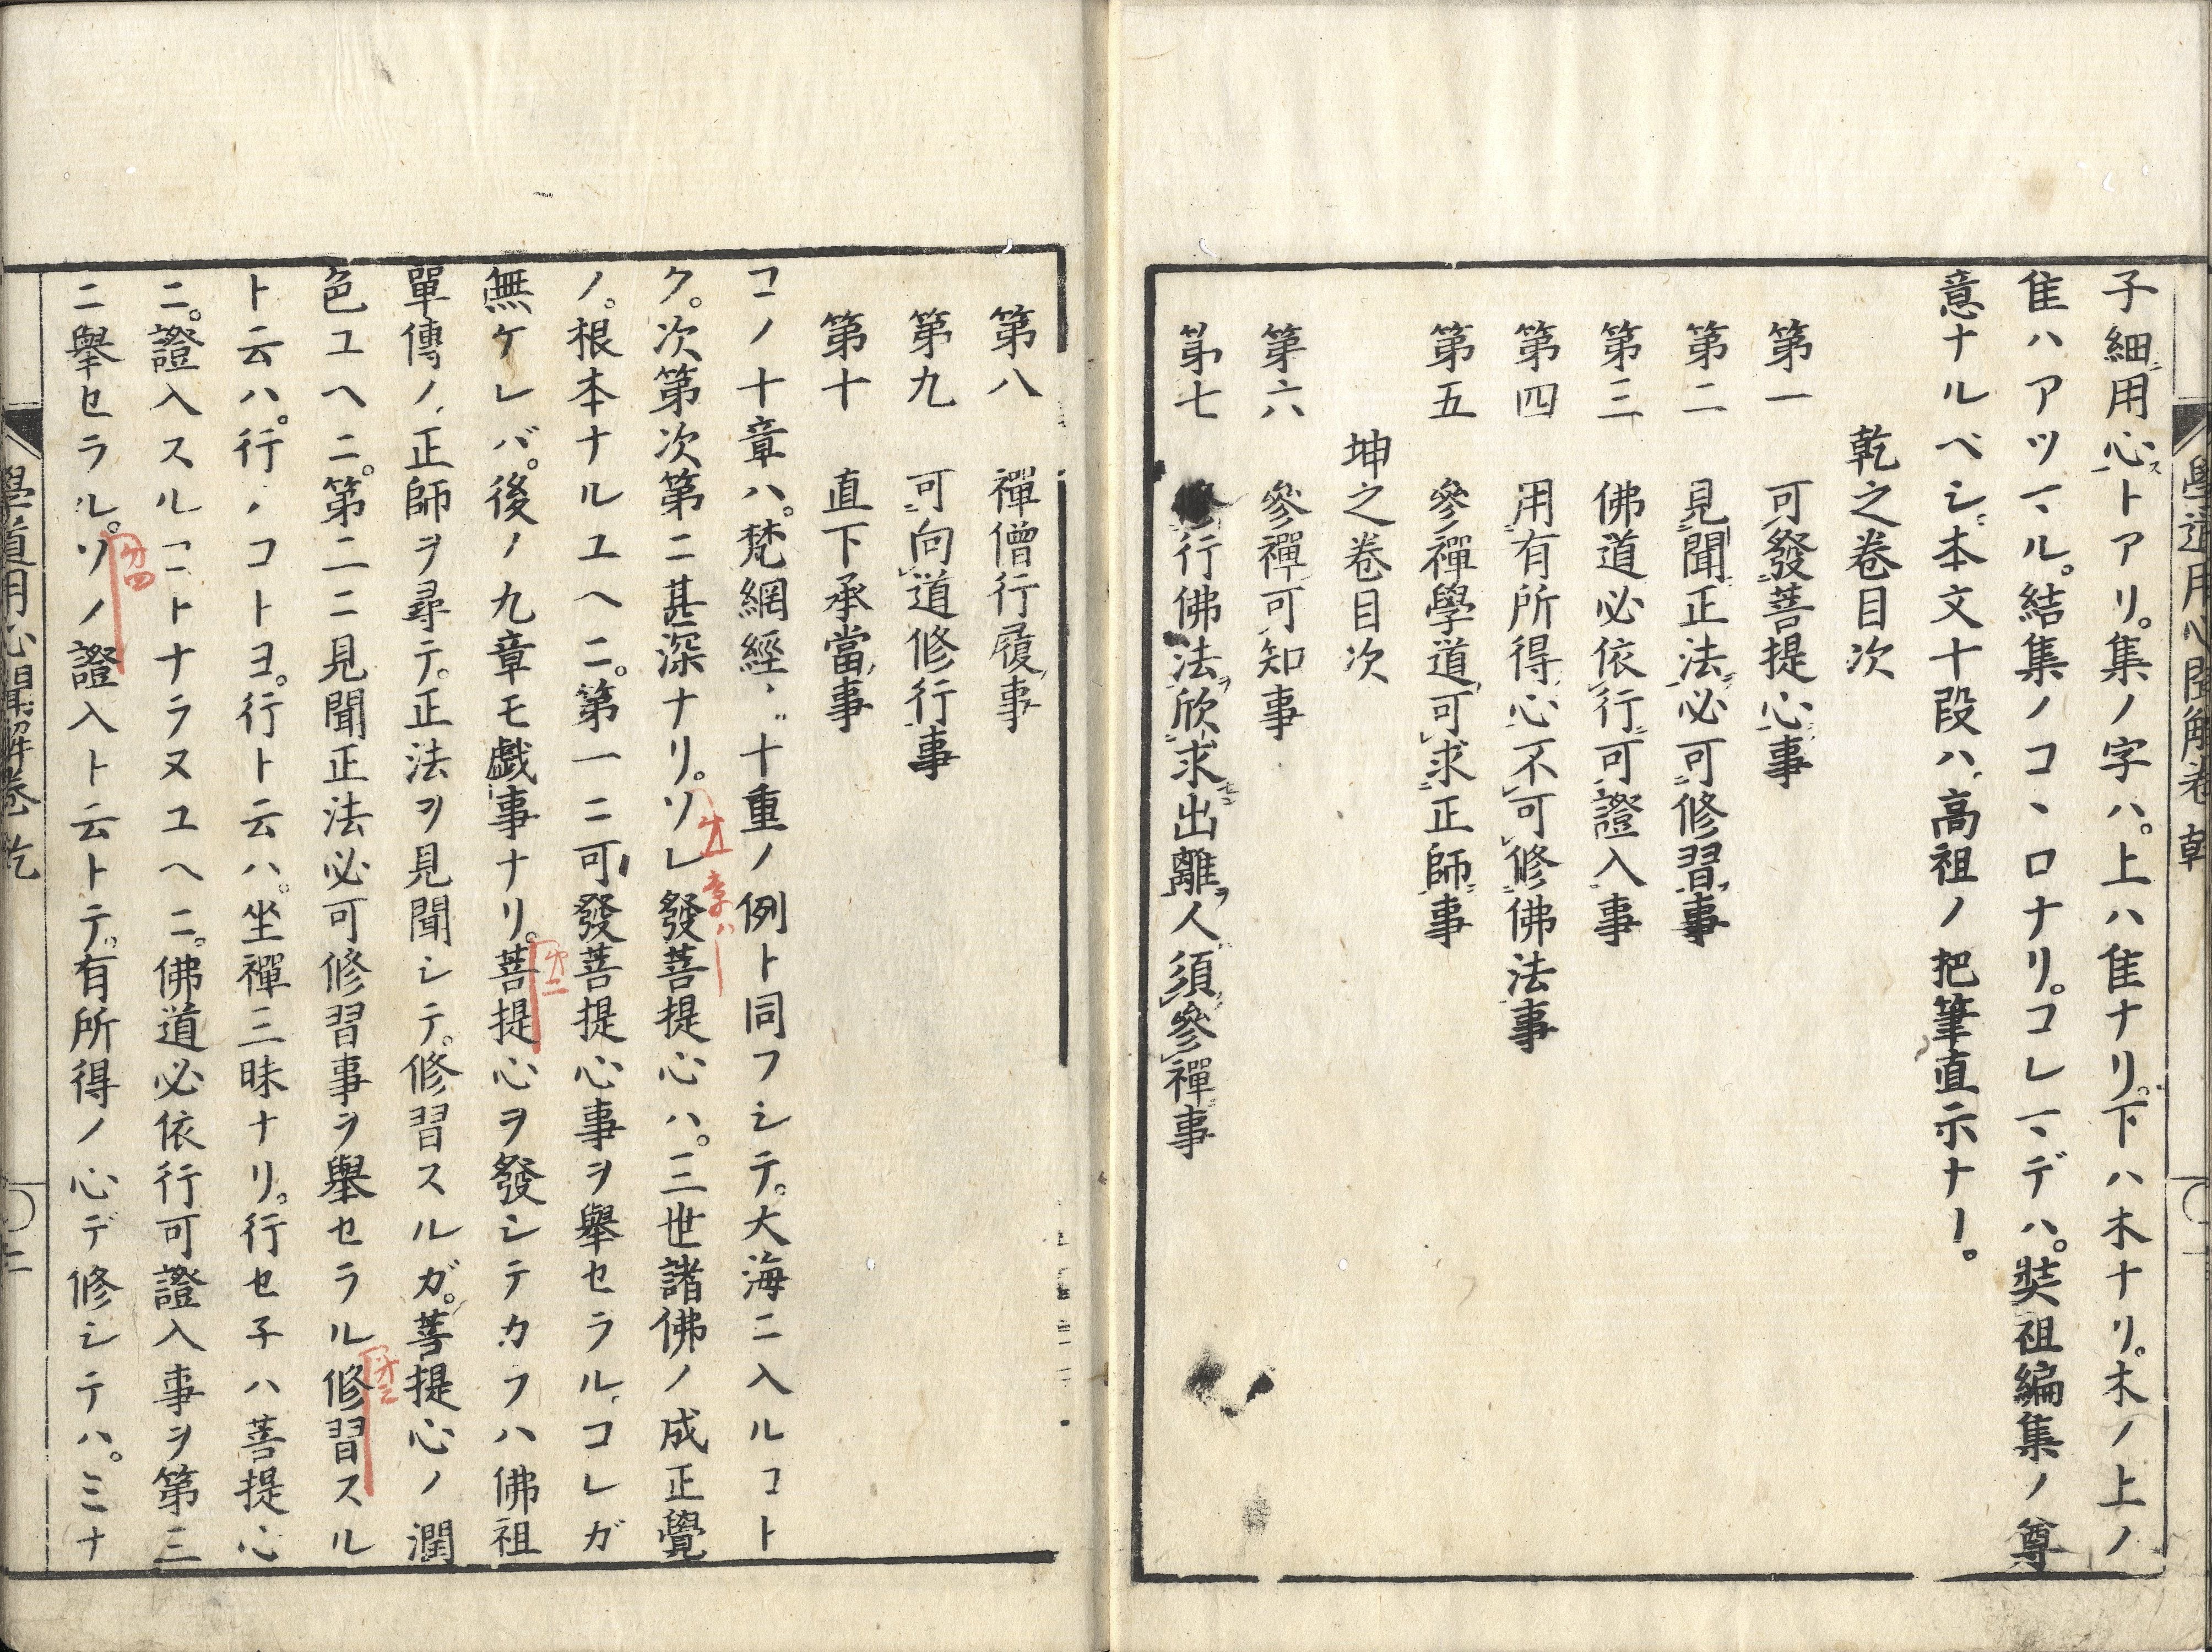 學道用心聞解卷 乾
子細用心ストアリ。集ノ字ハ。上ハ隹ナリ。下ハ木ナリ。木ノ上ノ
隹ハアツマル。結集ノコヽロナリ。コレマデハ。奘祖編集ノ尊
意ナルベシ。本文十段ハ高祖ノ把筆直示ナリ。
乾之卷目次
第一 可發菩提心事
第二 見聞正法必可修習事
第三 佛道必依行可證入事
第四 用有所得心不可修佛法事
第五 參禪學道可求正師事
坤之卷目次
第六 參禪可知事
第七 修行佛法欣求出離人須參禪事
第八 禪僧行履事
第九 可向道修行事
第十 直下承當事
コノ十章ハ。梵網經ノ十重ノ例ト同フシテ。大海ニ入ルコト
ク。次第次第ニ甚深ナリ。ソレ發菩提心ハ。三世諸佛ノ成正覺
ノ。根本ナルユヘニ。第一ニ可發菩提心事ヲ擧セラル、コレガ
無ケレバ。後ノ九章モ戯事ナリ。菩提心ヲ發シテカラハ佛祖
單傳ノ正師ヲ尋テ。正法ヲ見聞シテ。修習スルガ。菩提心ノ潤
色ユヘニ。第二ニ見聞正法必可修習事ヲ擧セラル修習スル
ト云ハ。行ノコトヨ。行ト云ハ。坐禪三昧ナリ。行セ子ハ菩提心
ニ。證入スルコトナラヌユヘニ。佛道必依行可證入事ヲ第三
ニ擧セラル。ソノ證入ト云トテ。有所得ノ心デ修シテハ。ミナ
學道用心聞解卷 乾 二
才一
章ハ
才二
才三
才四